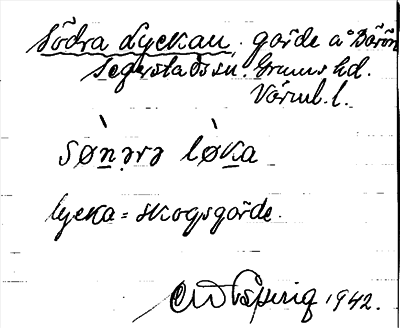 Södra Lyckan, gärde å Bärön
Segerstads sn. Grums hd.
Värml. l.
sø̀n̲ərə lø̀k̲a
lycka = skogsgärde.
1942.